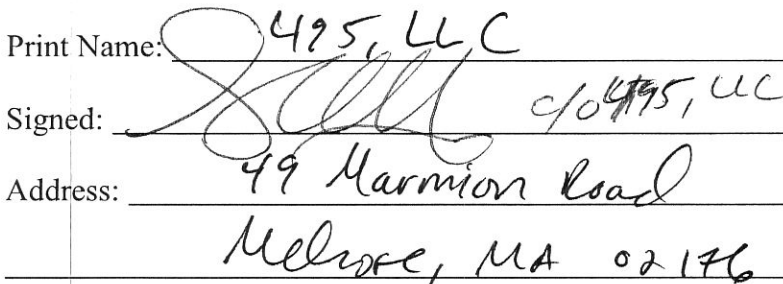 Print Name: 495, LLC
Signed: c/o 495, LLC
Address: 49 Marmion Road
Melrose, MA 02176